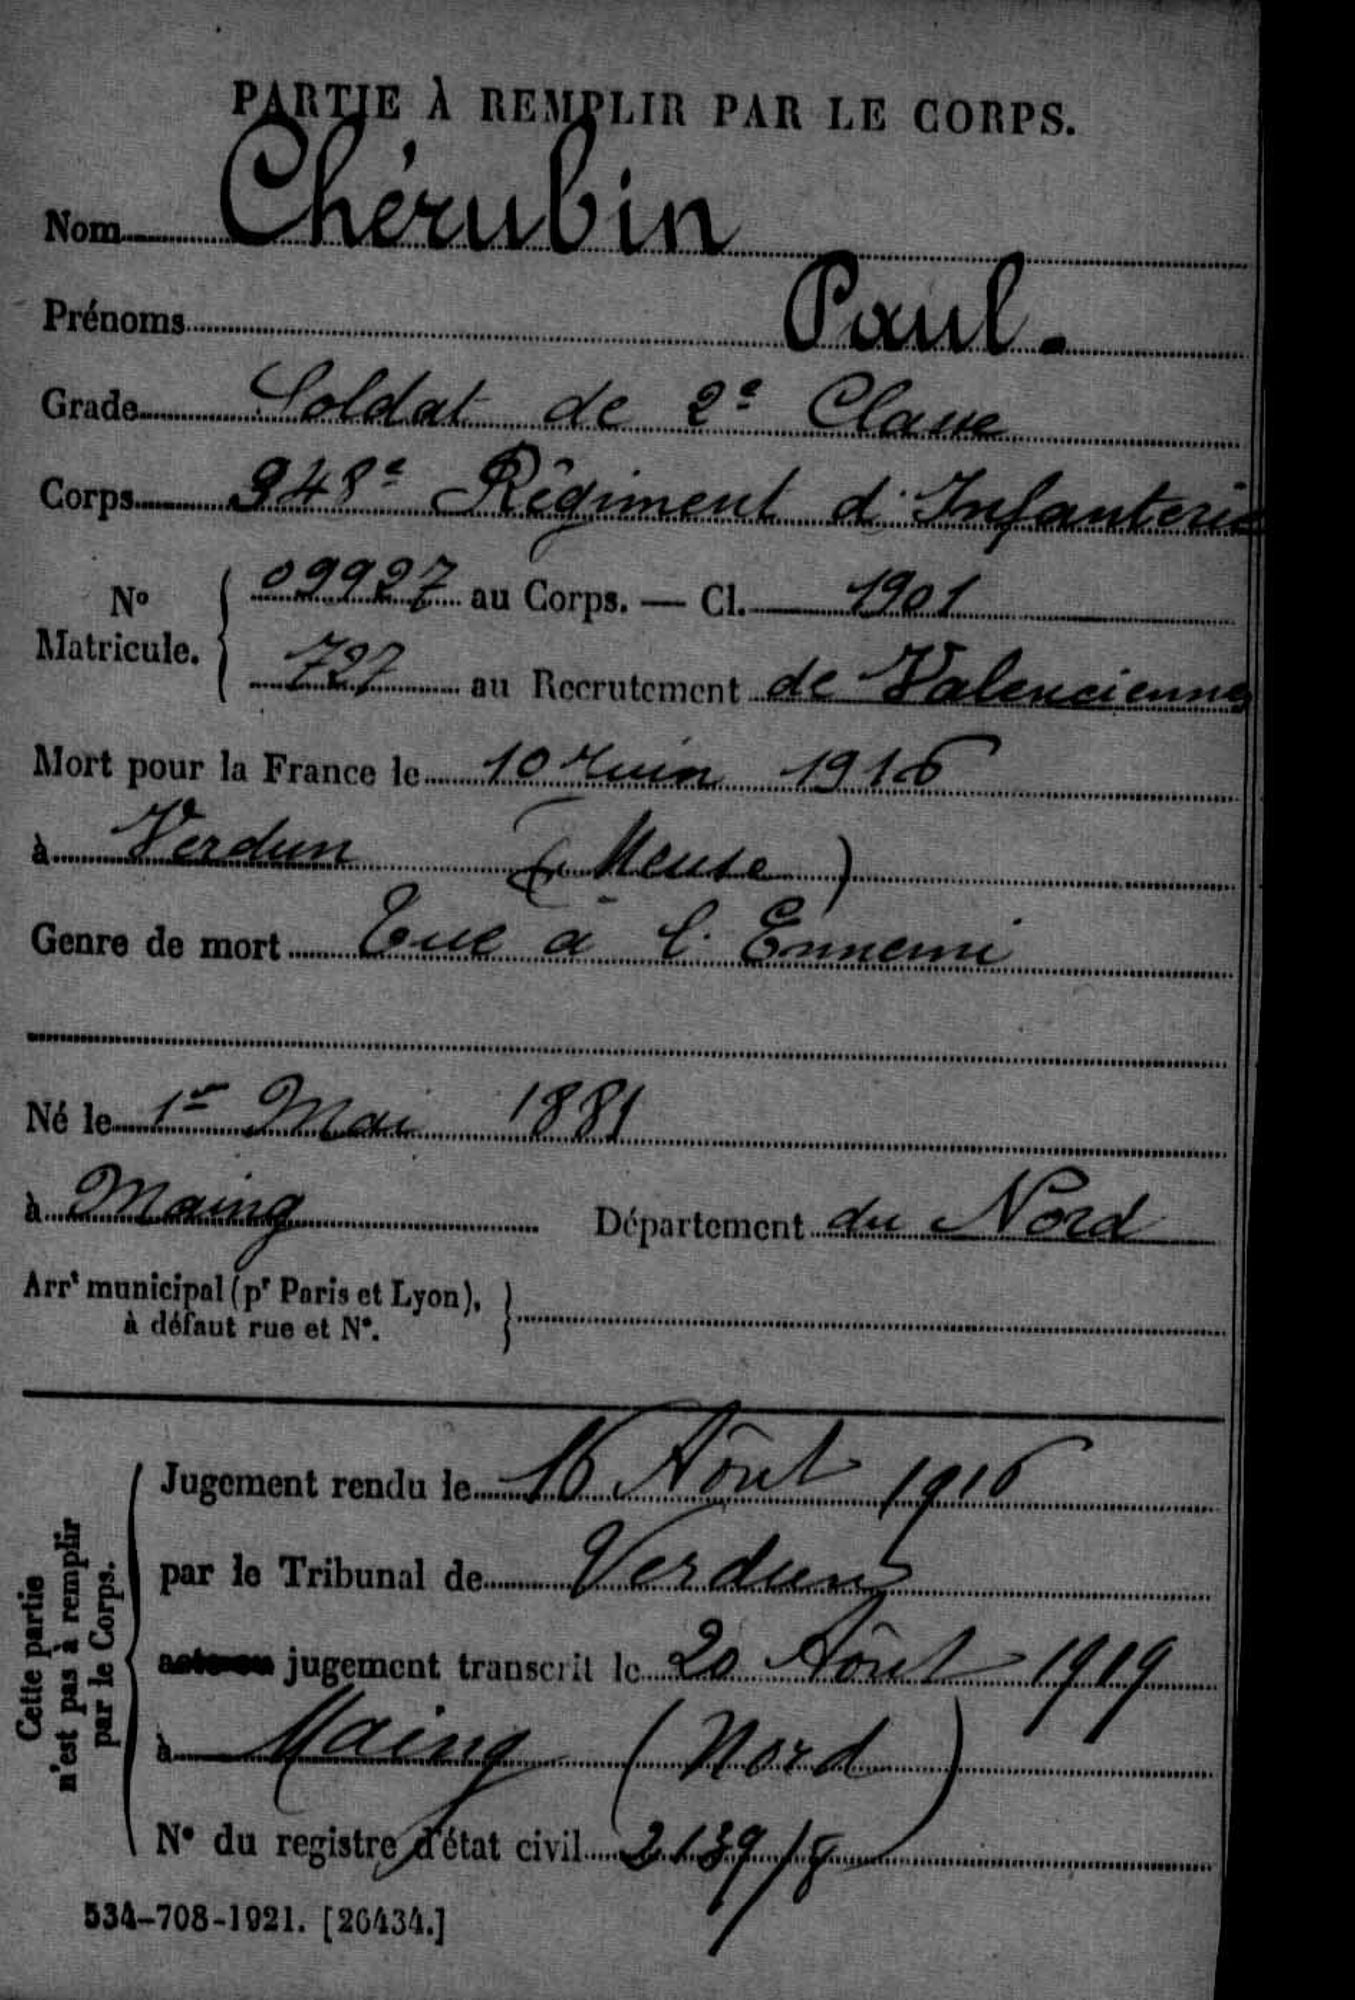 PARTIE À REMPLIR PAR LE CORPS.
Nom Chérubin
Prénoms Paul.
Grade Soldat de 2e Classe
Corps 348e Régiment d'Infanterie
No Matricule. 09927 au Corps. — Cl. 1901
727 au Recrutement de Valenciennes
Mort pour la France le 10 Juin 1916
à Verdun (Meuse)
Genre de mort Tué a l'Ennemi
Né le 1er Mai 1881
à Maing Département du Nord
Arrt municipal (pr Paris et Lyon),
à défaut rue et No.
Cette partie
n'est pas à remplir
par le Corps.
Jugement rendu le 16 Aôut 1916
par le Tribunal de Verdun
acte ou jugement transcrit le 20 Aôut 1919
à Maing (Nord)
No du registre d'état civil
534-708-1921. [26434.]